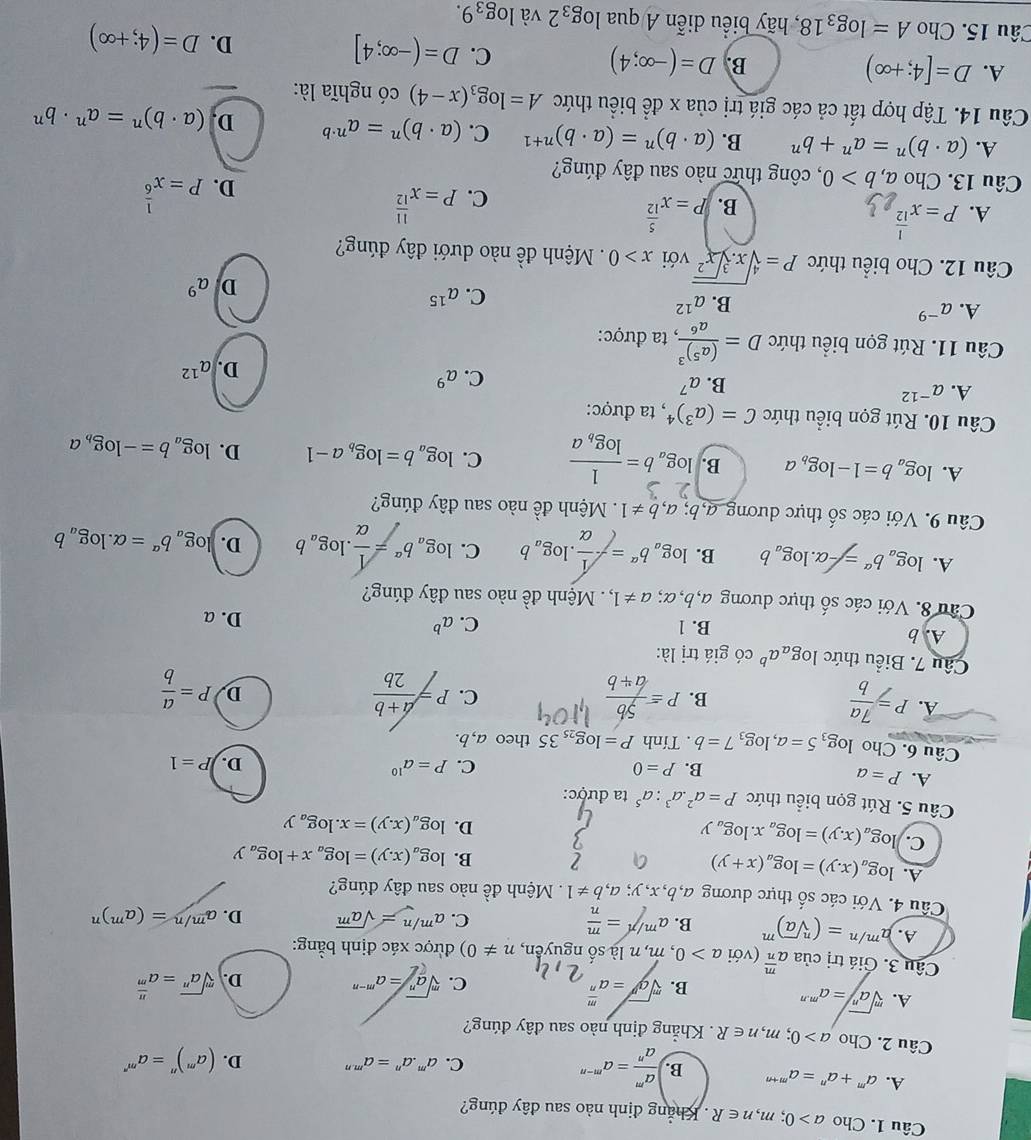 Câu 1. Cho a > 0; m,n ∈ R. Khẳng định nào sau đây đúng?
A. a^m + a^n = a^{m+n} B. \frac{a^m}{a^n} = a^{m-n} C. a^m.a^n = a^{m.n} D. (a^m)^n = a^{m^n}
Câu 2. Cho a > 0; m,n ∈ R. Khẳng định nào sau đây đúng?
A. \sqrt[m]{a^n} = a^{m.n} B. \sqrt[m]{a^n} = a^{\frac{m}{n}} C. \sqrt[m]{a^n} = a^{m-n} D. \sqrt[m]{a^n} = a^{\frac{n}{m}}
Câu 3. Giá trị của a^{\frac{m}{n}} (với a > 0, m, n là số nguyên, n ≠ 0) được xác định bằng:
A. a^{m/n} = (\sqrt[n]{a})^m B. a^{m/n} = \frac{m}{n} C. a^{m/n} = \sqrt{a^m} D. a^{m/n} = (a^m)^n
Câu 4. Với các số thực dương a,b,x,y; a,b ≠ 1. Mệnh đề nào sau đây đúng?
A. log_a(x.y) = log_a(x+y) B. log_a(x.y) = log_a x + log_a y
C. log_a(x.y) = log_a x.log_a y D. log_a(x.y) = x.log_a y
Câu 5. Rút gọn biểu thức P = a^2.a^3 : a^5 ta được:
A. P = a B. P = 0 C. P = a^{10} D. P = 1
Câu 6. Cho log_3 5 = a, log_3 7 = b. Tính P = log_{25} 35 theo a,b.
A. P = \frac{7a}{b} B. P = \frac{5b}{a+b} C. P = \frac{a+b}{2b} D. P = \frac{a}{b}
Câu 7. Biểu thức log_a a^b có giá trị là:
A. b B. 1 C. a^b D. a
Câu 8. Với các số thực dương a,b,α; a ≠ 1,. Mệnh đề nào sau đây đúng?
A. log_a b^α = -α.log_a b B. log_a b^α = -\frac{1}{α}.log_a b C. log_a b^α = \frac{1}{α}.log_a b D. log_a b^α = α.log_a b
Câu 9. Với các số thực dương a,b; a,b ≠ 1. Mệnh đề nào sau đây đúng?
A. log_a b = 1 - log_b a B. log_a b = \frac{1}{log_b a} C. log_a b = log_b a - 1 D. log_a b = -log_b a
Câu 10. Rút gọn biểu thức C = (a^3)^4, ta được:
A. a^{-12} B. a^7 C. a^9 D. a^{12}
Câu 11. Rút gọn biểu thức D = \frac{(a^5)^3}{a^6}, ta được:
A. a^{-9} B. a^{12} C. a^{15} D. a^9
Câu 12. Cho biểu thức P = \sqrt[4]{x.\sqrt[3]{x^2}} với x > 0. Mệnh đề nào dưới đây đúng?
A. P = x^{\frac{1}{12}} B. P = x^{\frac{5}{12}} C. P = x^{\frac{11}{12}} D. P = x^{\frac{1}{6}}
Câu 13. Cho a, b > 0, công thức nào sau đây đúng?
A. (a · b)^n = a^n + b^n B. (a · b)^n = (a · b)^{n+1} C. (a · b)^n = a^{n·b} D. (a · b)^n = a^n · b^n
Câu 14. Tập hợp tất cả các giá trị của x để biểu thức A = log_3(x-4) có nghĩa là:
A. D = [4;+∞) B. D = (-∞;4) C. D = (-∞;4] D. D = (4;+∞)
Câu 15. Cho A = log_3 18, hãy biểu diễn A qua log_3 2 và log_3 9.